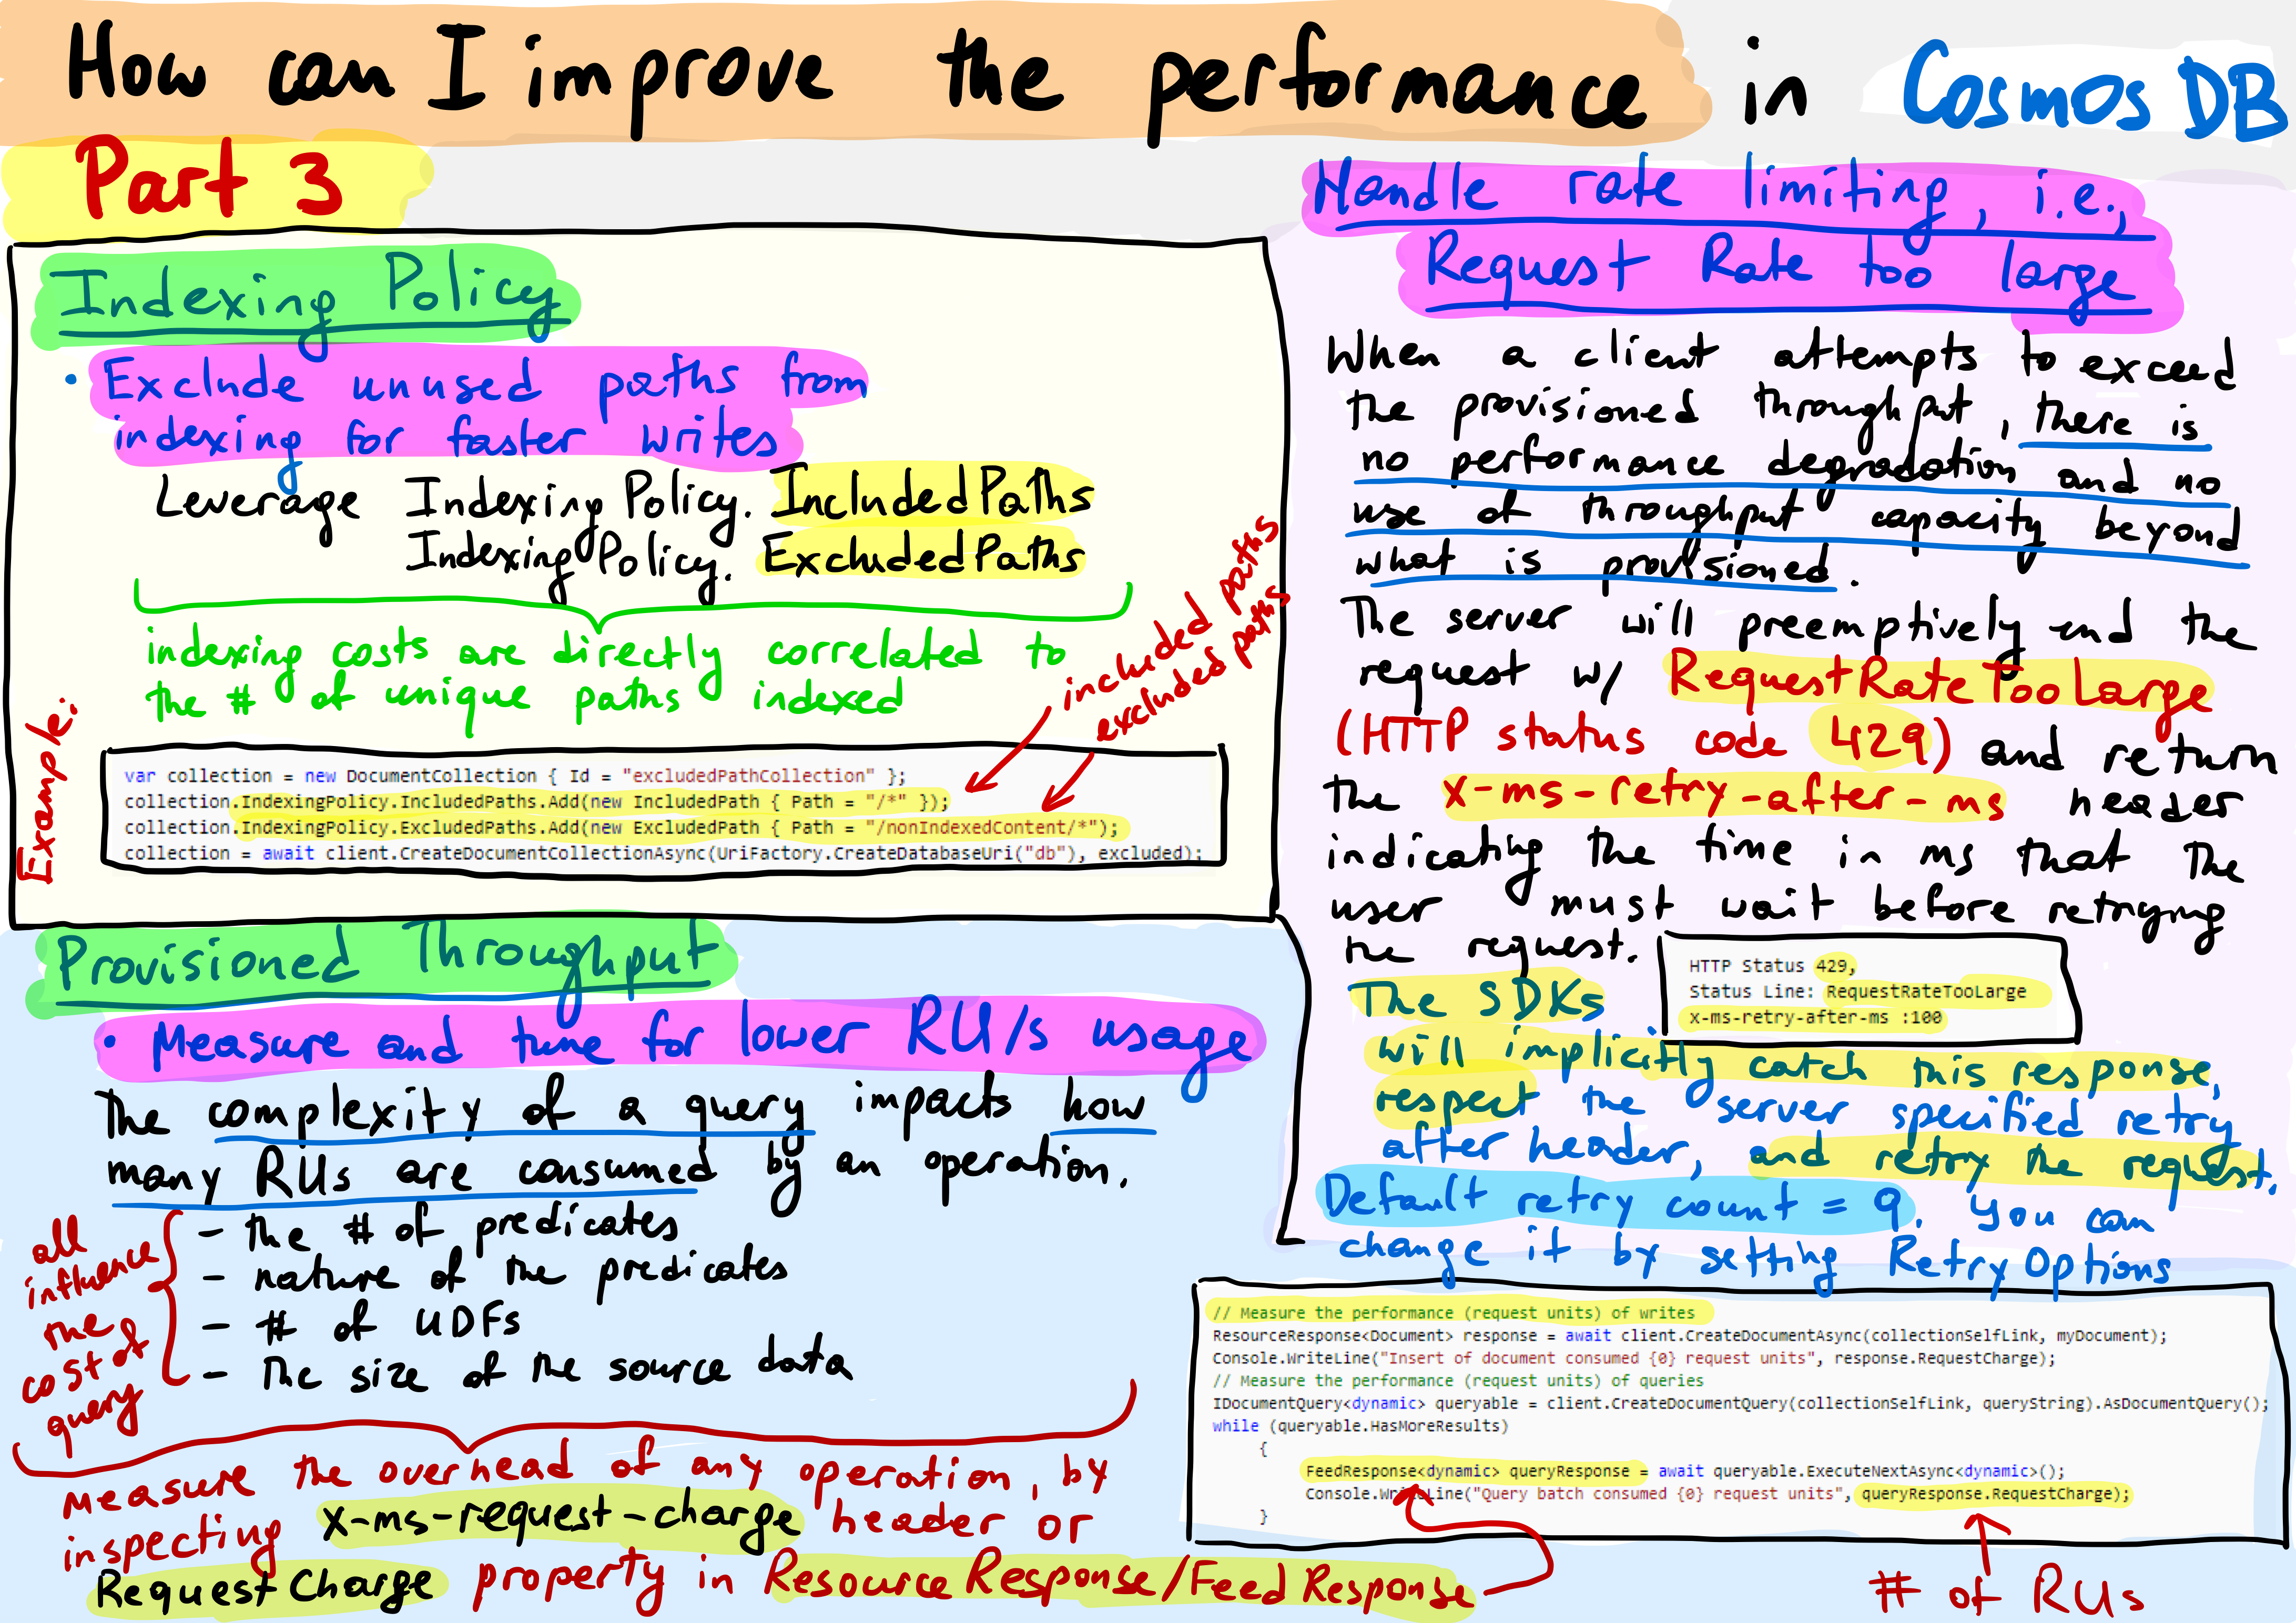 How can I improve the performance in Cosmos DB
Part 3
Indexing Policy
• Exclude unused paths from
indexing for faster writes
Leverage Indexing Policy. IncludedPaths
Indexing Policy. ExcludedPaths
indexing costs are directly correlated to
the # of unique paths indexed
included paths
excluded paths
Example:
var collection = new DocumentCollection { Id = "excludedPathCollection" };
collection.IndexingPolicy.IncludedPaths.Add(new IncludedPath { Path = "/*" });
collection.IndexingPolicy.ExcludedPaths.Add(new ExcludedPath { Path = "/nonIndexedContent/*");
collection = await client.CreateDocumentCollectionAsync(UriFactory.CreateDatabaseUri("db"), excluded);
Provisioned Throughput
• Measure and tune for lower RU/s usage
The complexity of a query impacts how
many RUs are consumed by an operation.
all
influence
the
cost of
query
- the # of predicates
- nature of the predicates
- # of UDFs
- The size of the source data
Measure the overhead of any operation, by
inspecting x-ms-request-charge header or
RequestCharge property in ResourceResponse/FeedResponse
Handle rate limiting, i.e.,
Request Rate too large
When a client attempts to exceed
the provisioned throughput, there is
no performance degradation and no
use of throughput capacity beyond
what is provisioned.
The server will preemptively end the
request w/ RequestRateTooLarge
(HTTP status code 429) and return
the x-ms-retry-after-ms header
indicating the time in ms that the
user must wait before retrying
the request.
HTTP Status 429,
Status Line: RequestRateTooLarge
x-ms-retry-after-ms :100
The SDKs
will implicitly catch this response,
respect the server specified retry
after header, and retry the request.
Default retry count = 9. You can
change it by setting RetryOptions
// Measure the performance (request units) of writes
ResourceResponse<Document> response = await client.CreateDocumentAsync(collectionSelfLink, myDocument);
Console.WriteLine("Insert of document consumed {0} request units", response.RequestCharge);
// Measure the performance (request units) of queries
IDocumentQuery<dynamic> queryable = client.CreateDocumentQuery(collectionSelfLink, queryString).AsDocumentQuery();
while (queryable.HasMoreResults)
{
FeedResponse<dynamic> queryResponse = await queryable.ExecuteNextAsync<dynamic>();
Console.WriteLine("Query batch consumed {0} request units", queryResponse.RequestCharge);
}
# of RUs